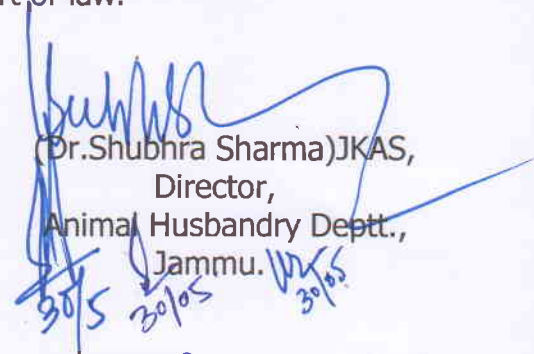 of law.
(Dr.Shubhra Sharma)JKAS,
Director,
Animal Husbandry Deptt.,
Jammu.
30/5 30/05 30/05